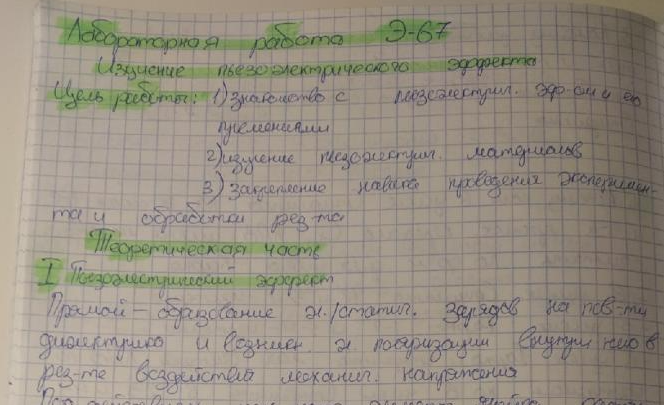 Лабораторная работа Э-67
Изучение пьезоэлектрического эффекта
Цель работы: 1) Знакомство с пьезоэлектрич. эф-ом и его
2) изучение пьезоэлектрич. материалов
3) Закрепление навыка проведения эксперимен-
та и обработки рез-та
Теоретическая часть
I Пьезоэлектрический эффект
Прямой – образование эл./статич. зарядов на пов-ти
диэлектрика и возникн. эл поляризации внутри него в
рез-те воздействия механич. напряжения